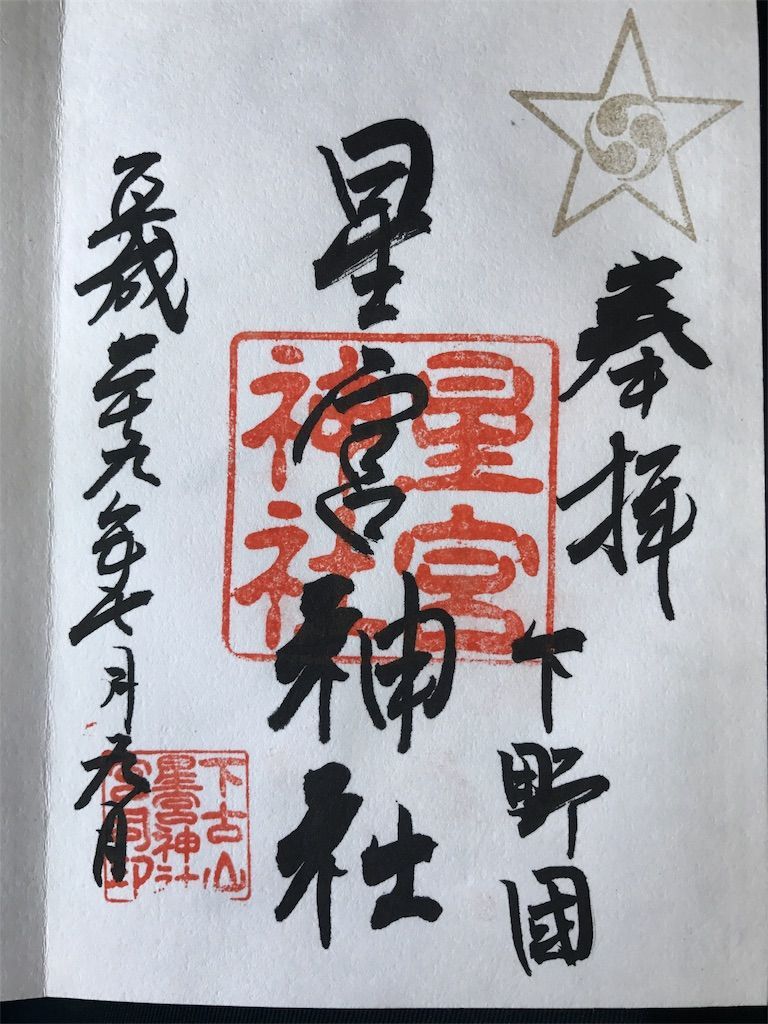 奉拝
下野國
星宮神社
星宮
神社
平成二十九年七月 日
下古山
星宮神社
宮司印